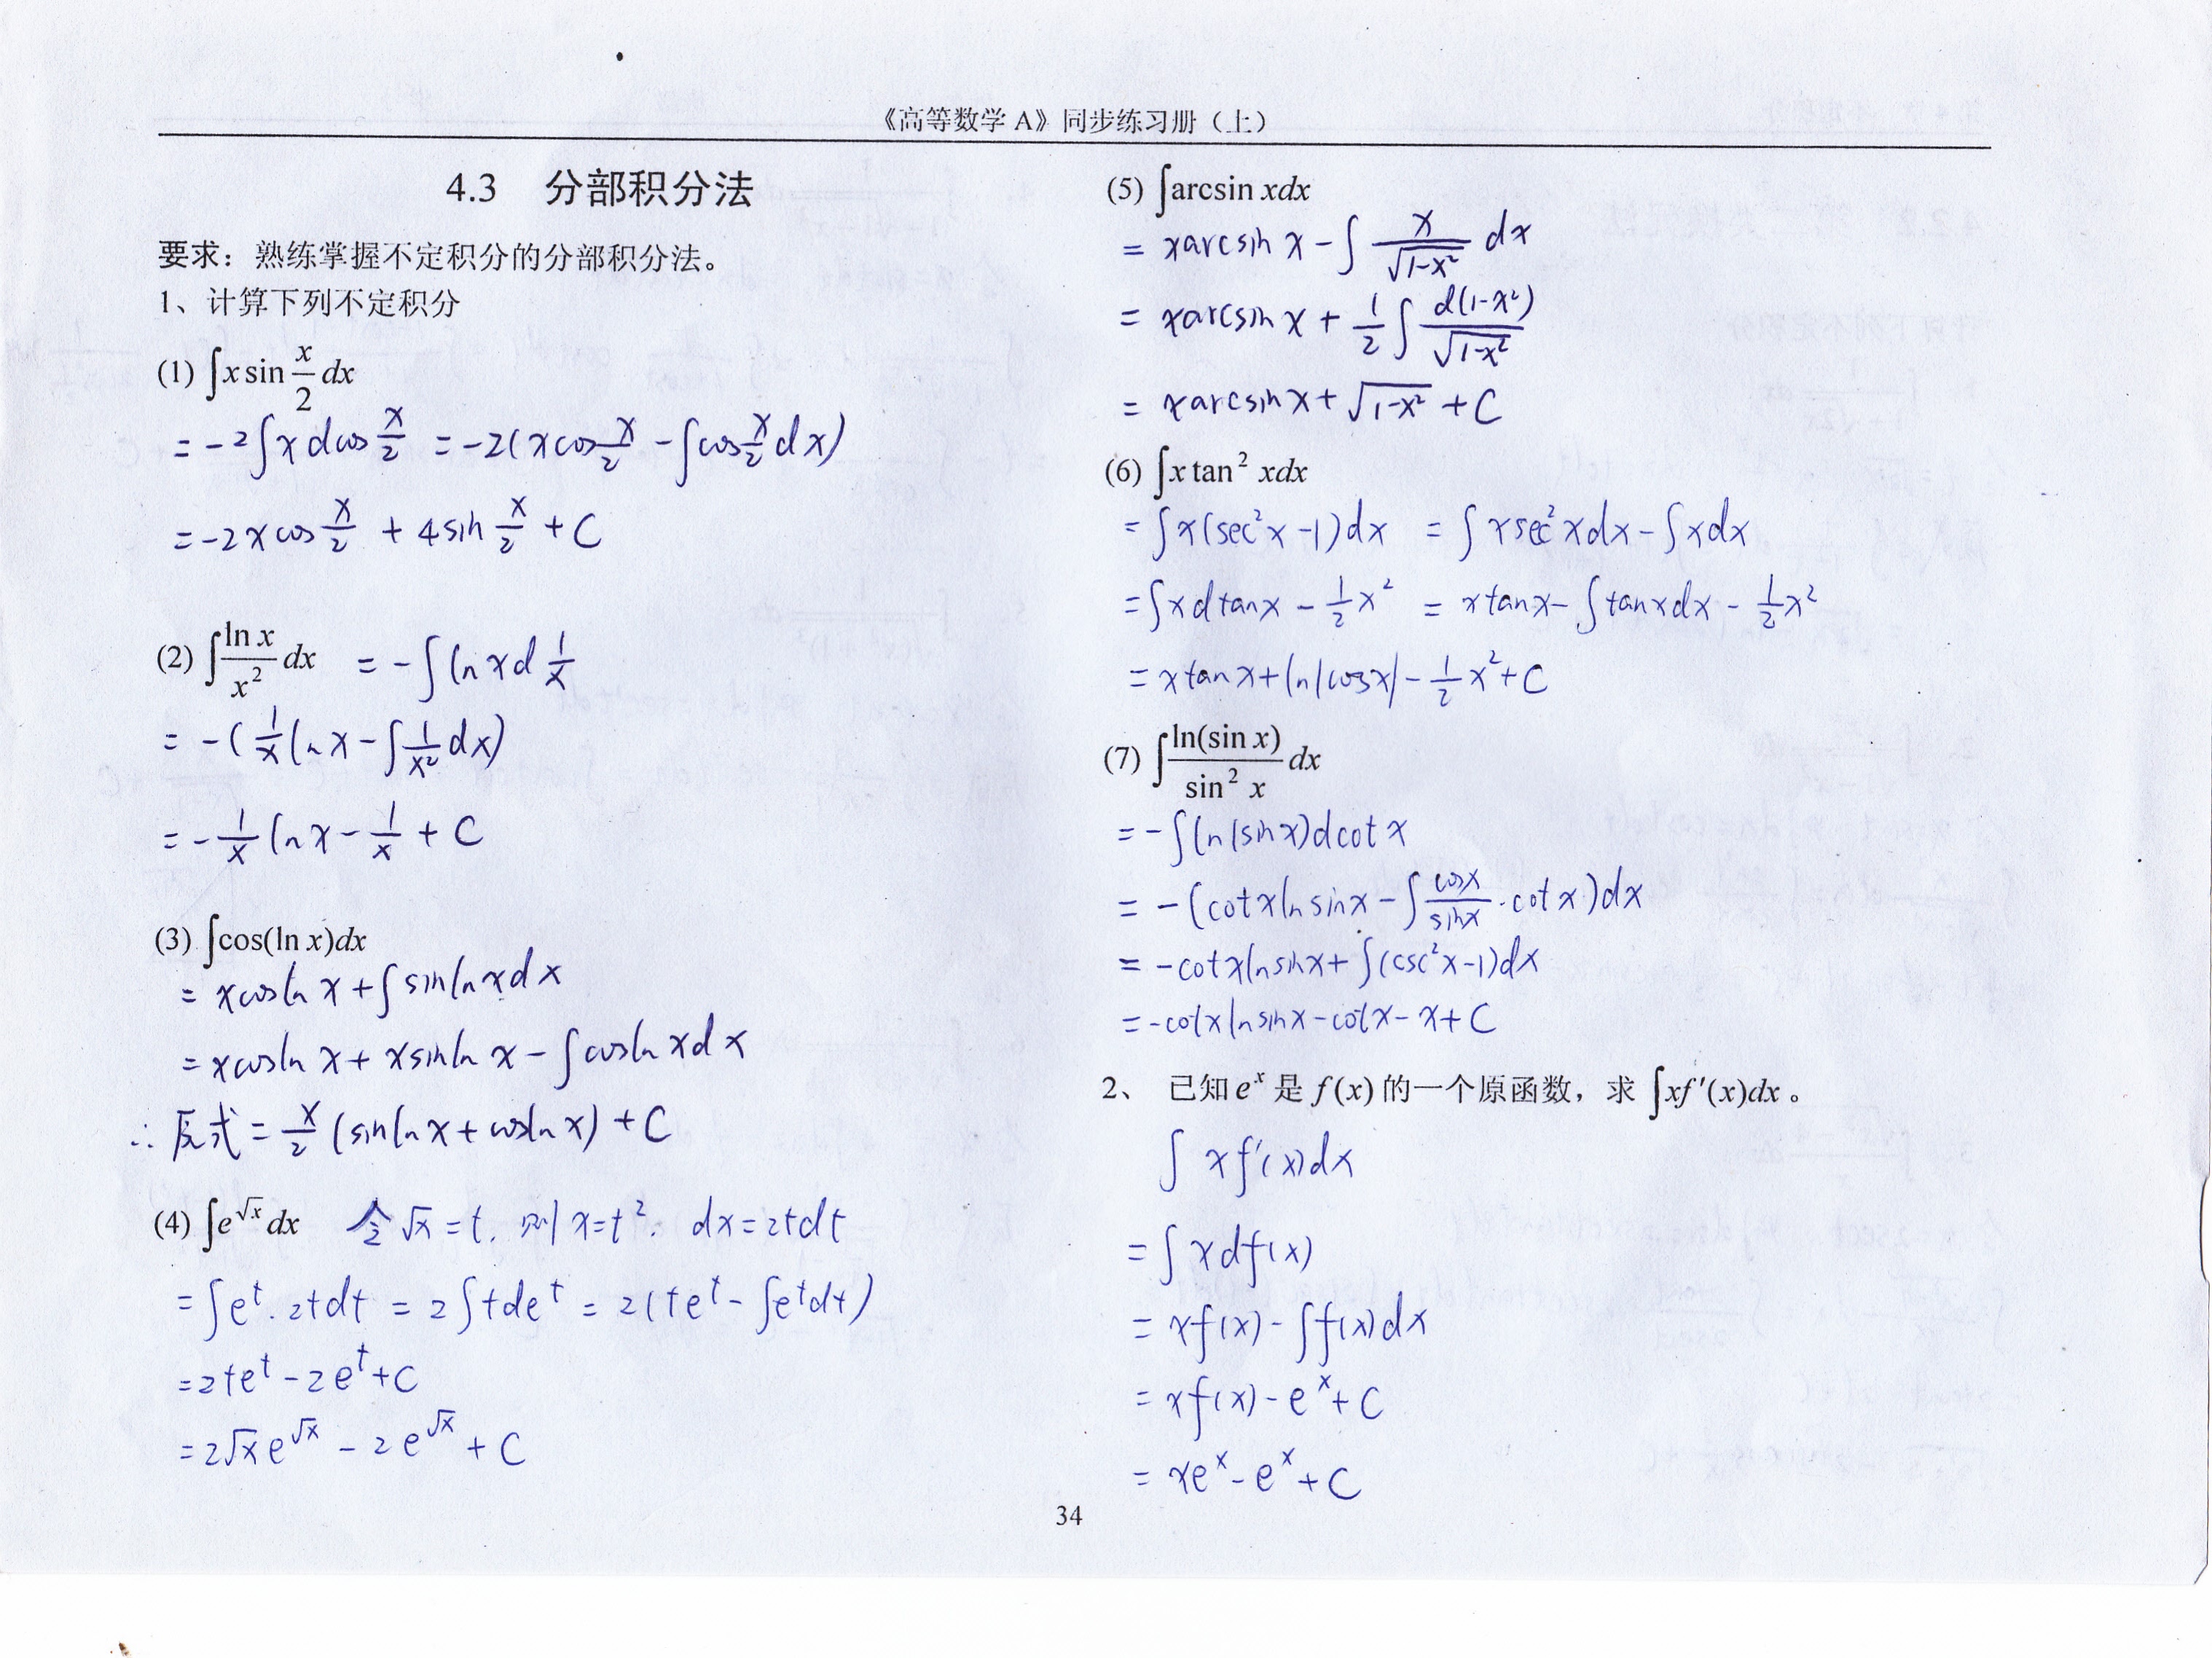 《高等数学 A》同步练习册（上）
4.3 分部积分法
要求：熟练掌握不定积分的分部积分法。
1、计算下列不定积分
(1) ∫x sin x/2 dx
= -2∫x dcos x/2 = -2(x cos x/2 - ∫cos x/2 dx)
= -2x cos x/2 + 4sin x/2 + C
(2) ∫ln x/x² dx = -∫ln x d 1/x
= -(1/x ln x - ∫1/x² dx)
= -1/x ln x - 1/x + C
(3) ∫cos(ln x)dx
= x cosln x + ∫sinln x dx
= x cosln x + x sinln x - ∫cosln x dx
∴ 原式 = x/2 (sinln x + cosln x) + C
(4) ∫e^√x dx 令 √x = t. 则 x = t². dx = 2tdt
= ∫e^t · 2tdt = 2∫tde^t = 2(te^t - ∫e^t dt)
= 2te^t - 2e^t + C
= 2√x e^√x - 2e^√x + C
(5) ∫arcsin xdx
= x arcsin x - ∫x/√(1-x²) dx
= x arcsin x + 1/2 ∫d(1-x²)/√(1-x²)
= x arcsin x + √(1-x²) + C
(6) ∫x tan² xdx
= ∫x(sec²x - 1)dx = ∫x sec²x dx - ∫x dx
= ∫x d tan x - 1/2 x² = x tan x - ∫tan x dx - 1/2 x²
= x tan x + ln|cos x| - 1/2 x² + C
(7) ∫ln(sin x)/sin² x dx
= -∫ln(sin x)dcot x
= -(cot x ln sin x - ∫cos x/sin x · cot x)dx
= -cot x ln sin x + ∫(csc²x - 1)dx
= -cot x ln sin x - cot x - x + C
2、 已知 e^x 是 f(x) 的一个原函数，求 ∫xf′(x)dx 。
∫ x f′(x)dx
= ∫ x df(x)
= xf(x) - ∫f(x)dx
= xf(x) - e^x + C
= xe^x - e^x + C
34